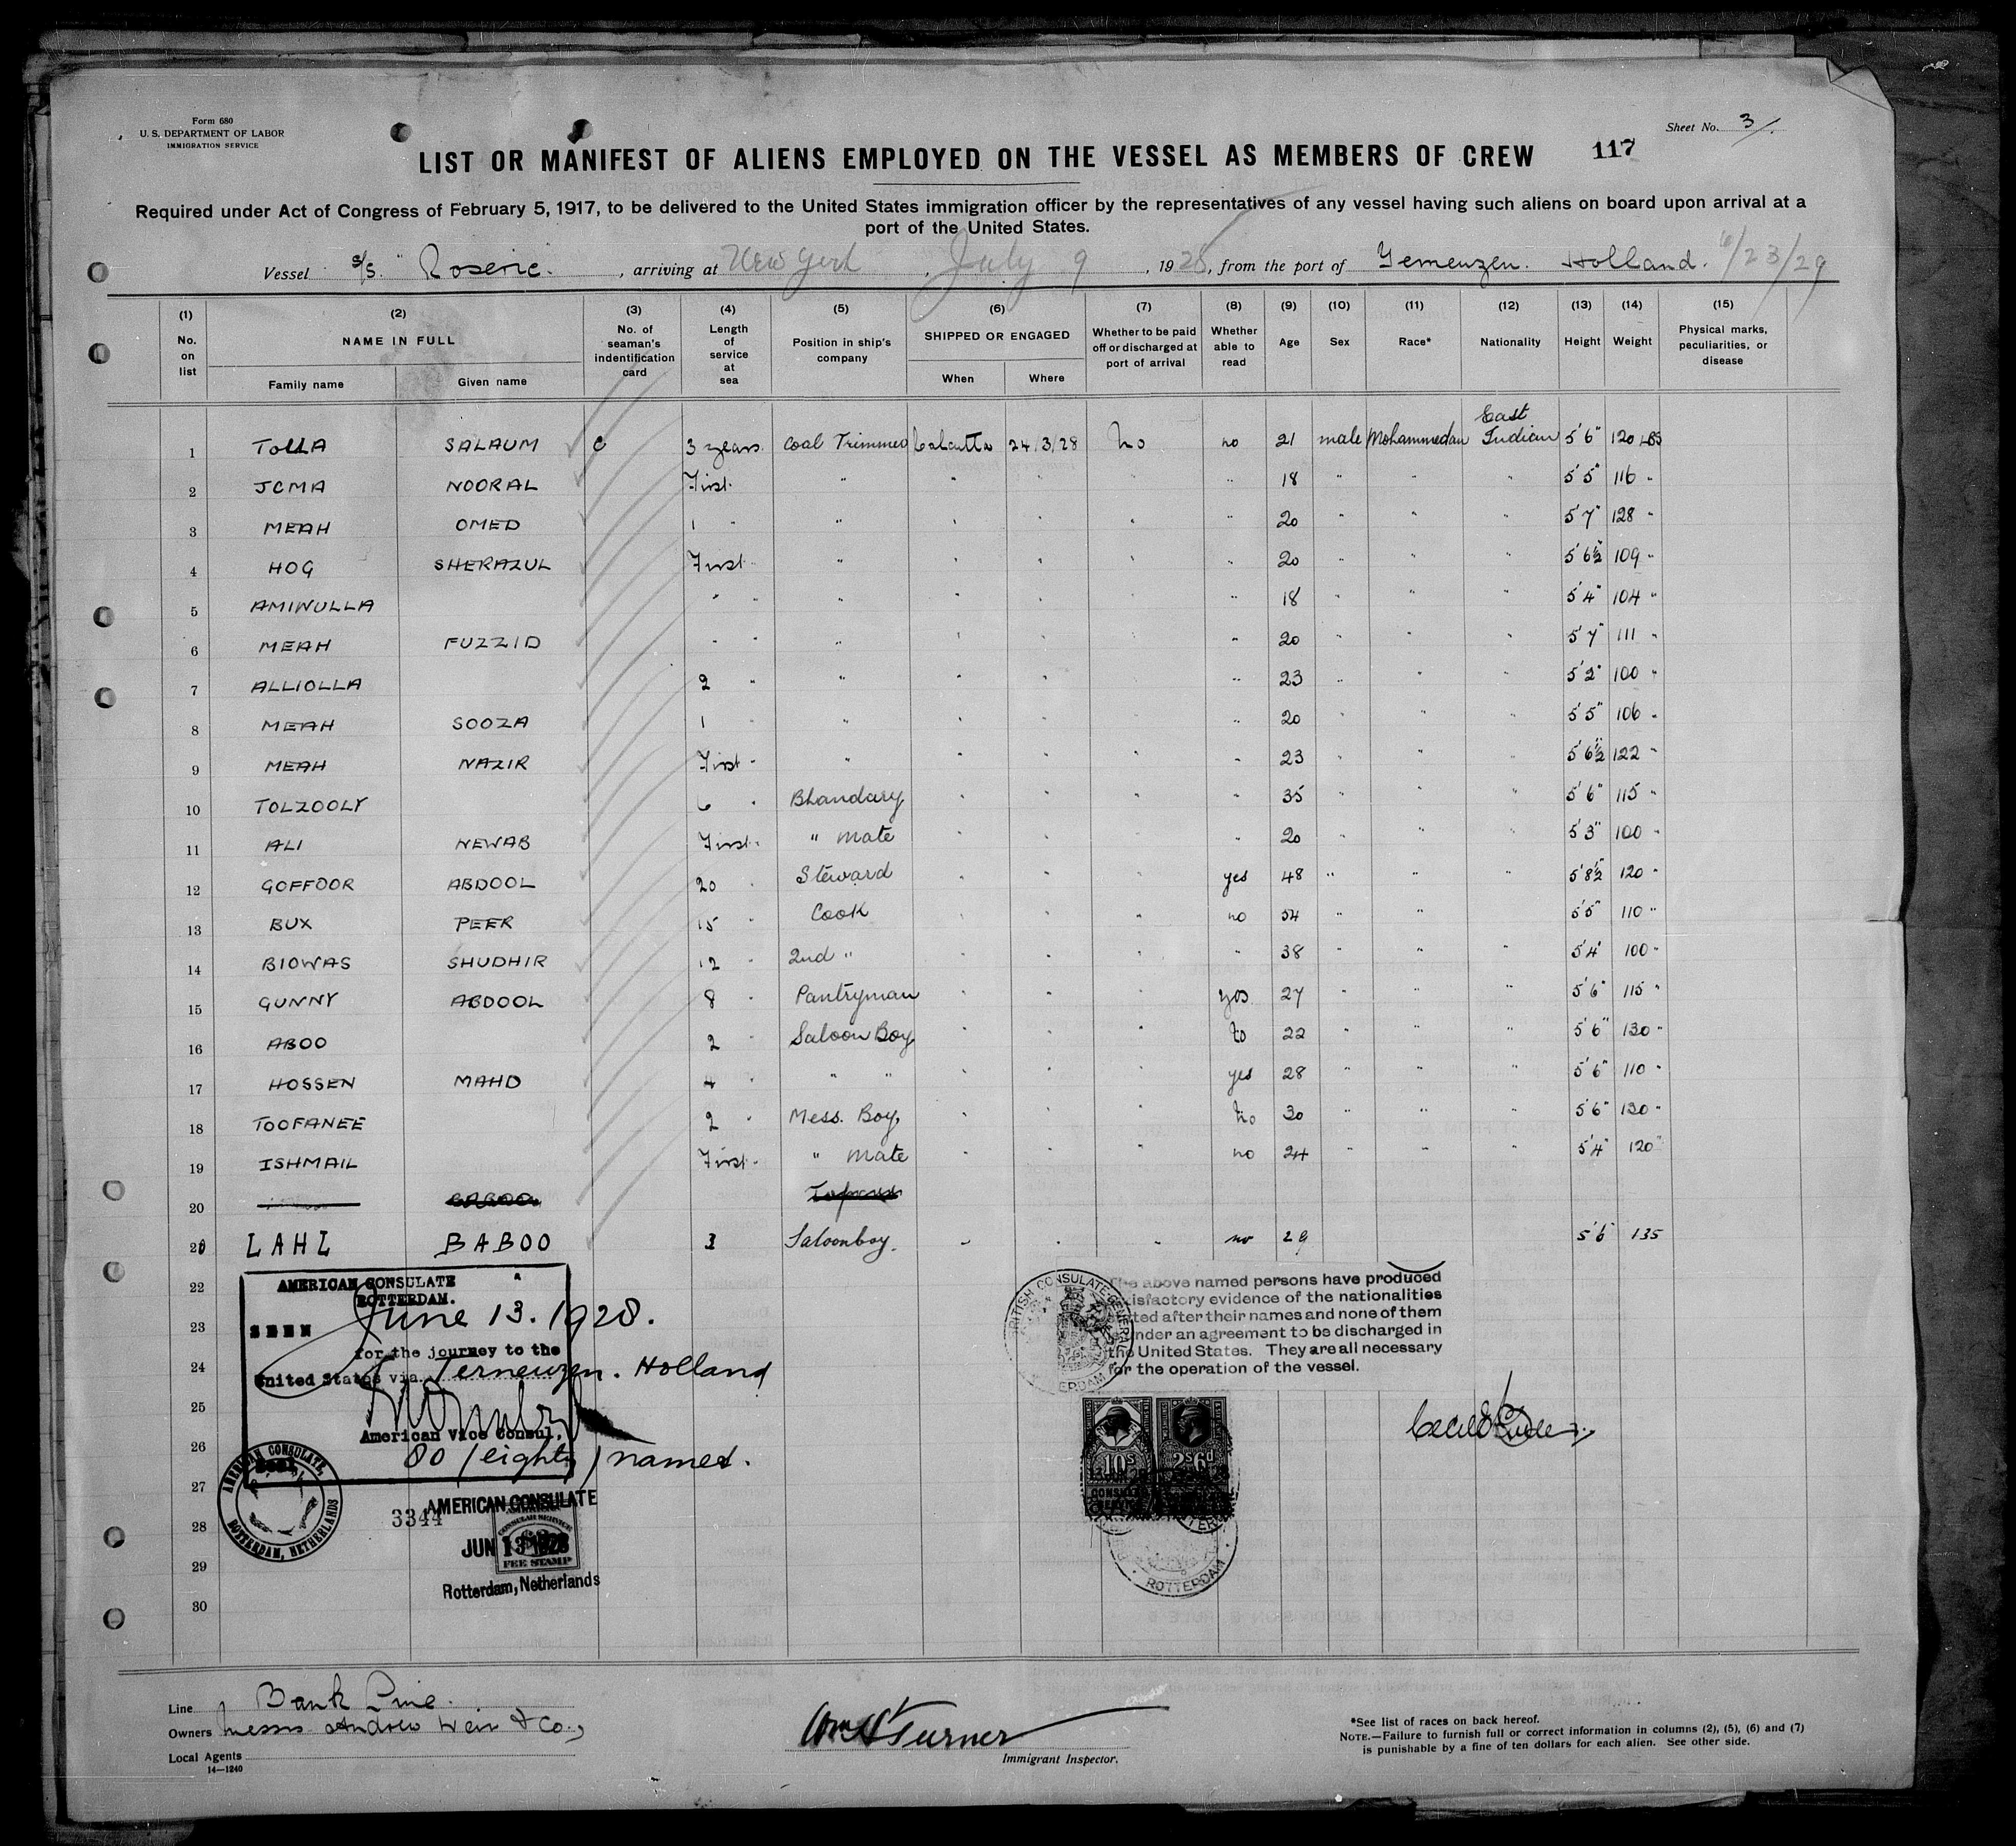 Form 680
U. S. DEPARTMENT OF LABOR
IMMIGRATION SERVICE
Sheet No. 3/.
LIST OR MANIFEST OF ALIENS EMPLOYED ON THE VESSEL AS MEMBERS OF CREW 117
Required under Act of Congress of February 5, 1917, to be delivered to the United States immigration officer by the representatives of any vessel having such aliens on board upon arrival at a
port of the United States.
Vessel s/s. "Roseric. , arriving at New York , July 9 , 1928, from the port of Temeuzen. Holland. 6/23/29
(1) No. on list (2) NAME IN FULL Family name Given name (3) No. of seaman's indentification card (4) Length of service at sea (5) Position in ship's company (6) SHIPPED OR ENGAGED When Where (7) Whether to be paid off or discharged at port of arrival (8) Whether able to read (9) Age (10) Sex (11) Race* (12) Nationality (13) Height (14) Weight (15) Physical marks, peculiarities, or disease
1 TOLLA SALAUM C 3 years. Coal Trimmer Calcutta 24/3/28 No no 21 male Mohammedan East Indian 5'6" 120 LBS
2 JCMA NOORAL First. " " " " 18 " " " 5'5" 116 "
3 MEAH OMED 1 " " " " " " 20 " " " 5'7" 128 "
4 HOG SHERAZUL First " " " " " 20 " " " 5'6½" 109 "
5 AMINULLA " " " " " " 18 " " " 5'4" 104 "
6 MEAH FUZZID " " " " " " 20 " " " 5'7" 111 "
7 ALLIOLLA 2 " " " " " 23 " " " 5'2" 100 "
8 MEAH SOOZA 1 " " " " 20 " " " 5'5" 106 "
9 MEAH NAZIR First " " " " " " 23 " " " 5'6½" 122 "
10 TOLZOOLY 6 " Bhandary " " " " 35 " " " 5'6" 115 "
11 ALI NEWAB First " " Mate " " " " 20 " " " 5'3" 100 "
12 GOFFOOR ABDOOL 20 " Steward " " " yes 48 " " " 5'8½" 120 "
13 BUX PEER 15 " Cook " " " no 54 " " 5'5" 110 "
14 BIOWAS SHUDHIR 12 " 2nd " " " " " 38 " " " 5'4" 100 "
15 GUNNY ABDOOL 8 " Pantryman " " " yes 27 " " " 5'6" 115 "
16 ABOO 2 " Saloon Boy " " " no 22 " " " 5'6" 130 "
17 HOSSEN MAHD 4 " " " " " " yes 28 " " " 5'6" 110 "
18 TOOFANEE 2 " Mess. Boy " " " no 30 " " " 5'6" 130 "
19 ISHMAIL First " " Mate " " " no 24 " " " 5'4" 120 "
20
LAHL BABOO 3 Saloonboy. " " " no 29 5'6 135
22 AMERICAN CONSULATE
ROTTERDAM.
23 SEEN June 13. 1928.
for the journey to the
24 United States via Terneuzen. Holland
25
American Vice Consul,
26 80 (eighty) named.
27
28
29
30
The above named persons have produced
satisfactory evidence of the nationalities
stated after their names and none of them
under an agreement to be discharged in
the United States. They are all necessary
for the operation of the vessel.
BRITISH CONSULATE GENERAL
ROTTERDAM
10s 2s6d
ROTTERDAM
AMERICAN CONSULATE,
ROTTERDAM, NETHERLANDS
3344
AMERICAN CONSULATE
JUN 13 1928
CONSULAR SERVICE
FEE STAMP
Rotterdam, Netherlands
Line Bank Line.
Owners Messrs Andrew Weir & Co.,
Local Agents
14—1240
Wm H Turner
Immigrant Inspector.
*See list of races on back hereof.
NOTE.—Failure to furnish full or correct information in columns (2), (5), (6) and (7)
is punishable by a fine of ten dollars for each alien. See other side.